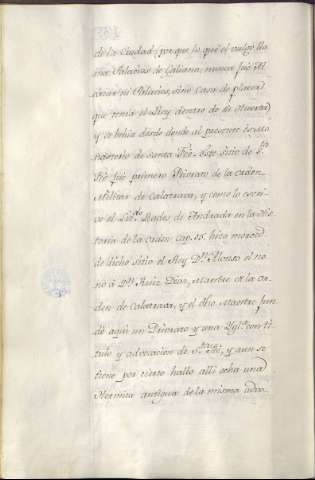 de la Ciudad; porque lo que el vulgo lla
ma Palacios de Galiana, nunca fue Al
cazar ni Palacios, sino casa de placer
que tenia el Rey dentro de su Huerta
y se habia dado donde al presente es
Monasterio de Santa Fée. Este sitio de S.ta
Fé fué primero Priorato de la orden
Militar de Calatrava, y como lo escri
ve el Lic.do Rades de Andrada en la His
toria de la orden cap. 15. hizo merced
de dicho sitio el Rey D.n Alonso el no
no á D.n Ruiz Diaz, Maestre de la or
den de Calatrava, y el dho Maestre fun
dó aquí un Priorato y una Ygl.ª con ti
tulo y advocacion de S.ta Fé, y aun se
tiene por cierto halló allí echa una
Hermita antigua de la misma advo